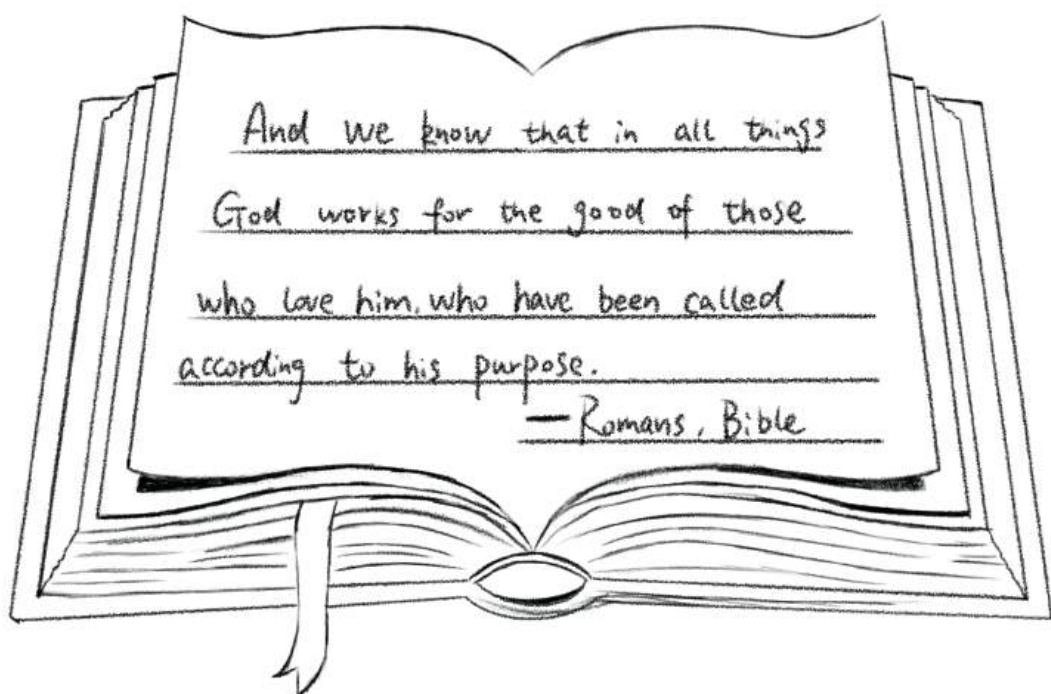 And we know that in all things
God works for the good of those
who love him, who have been called
according to his purpose.
— Romans, Bible